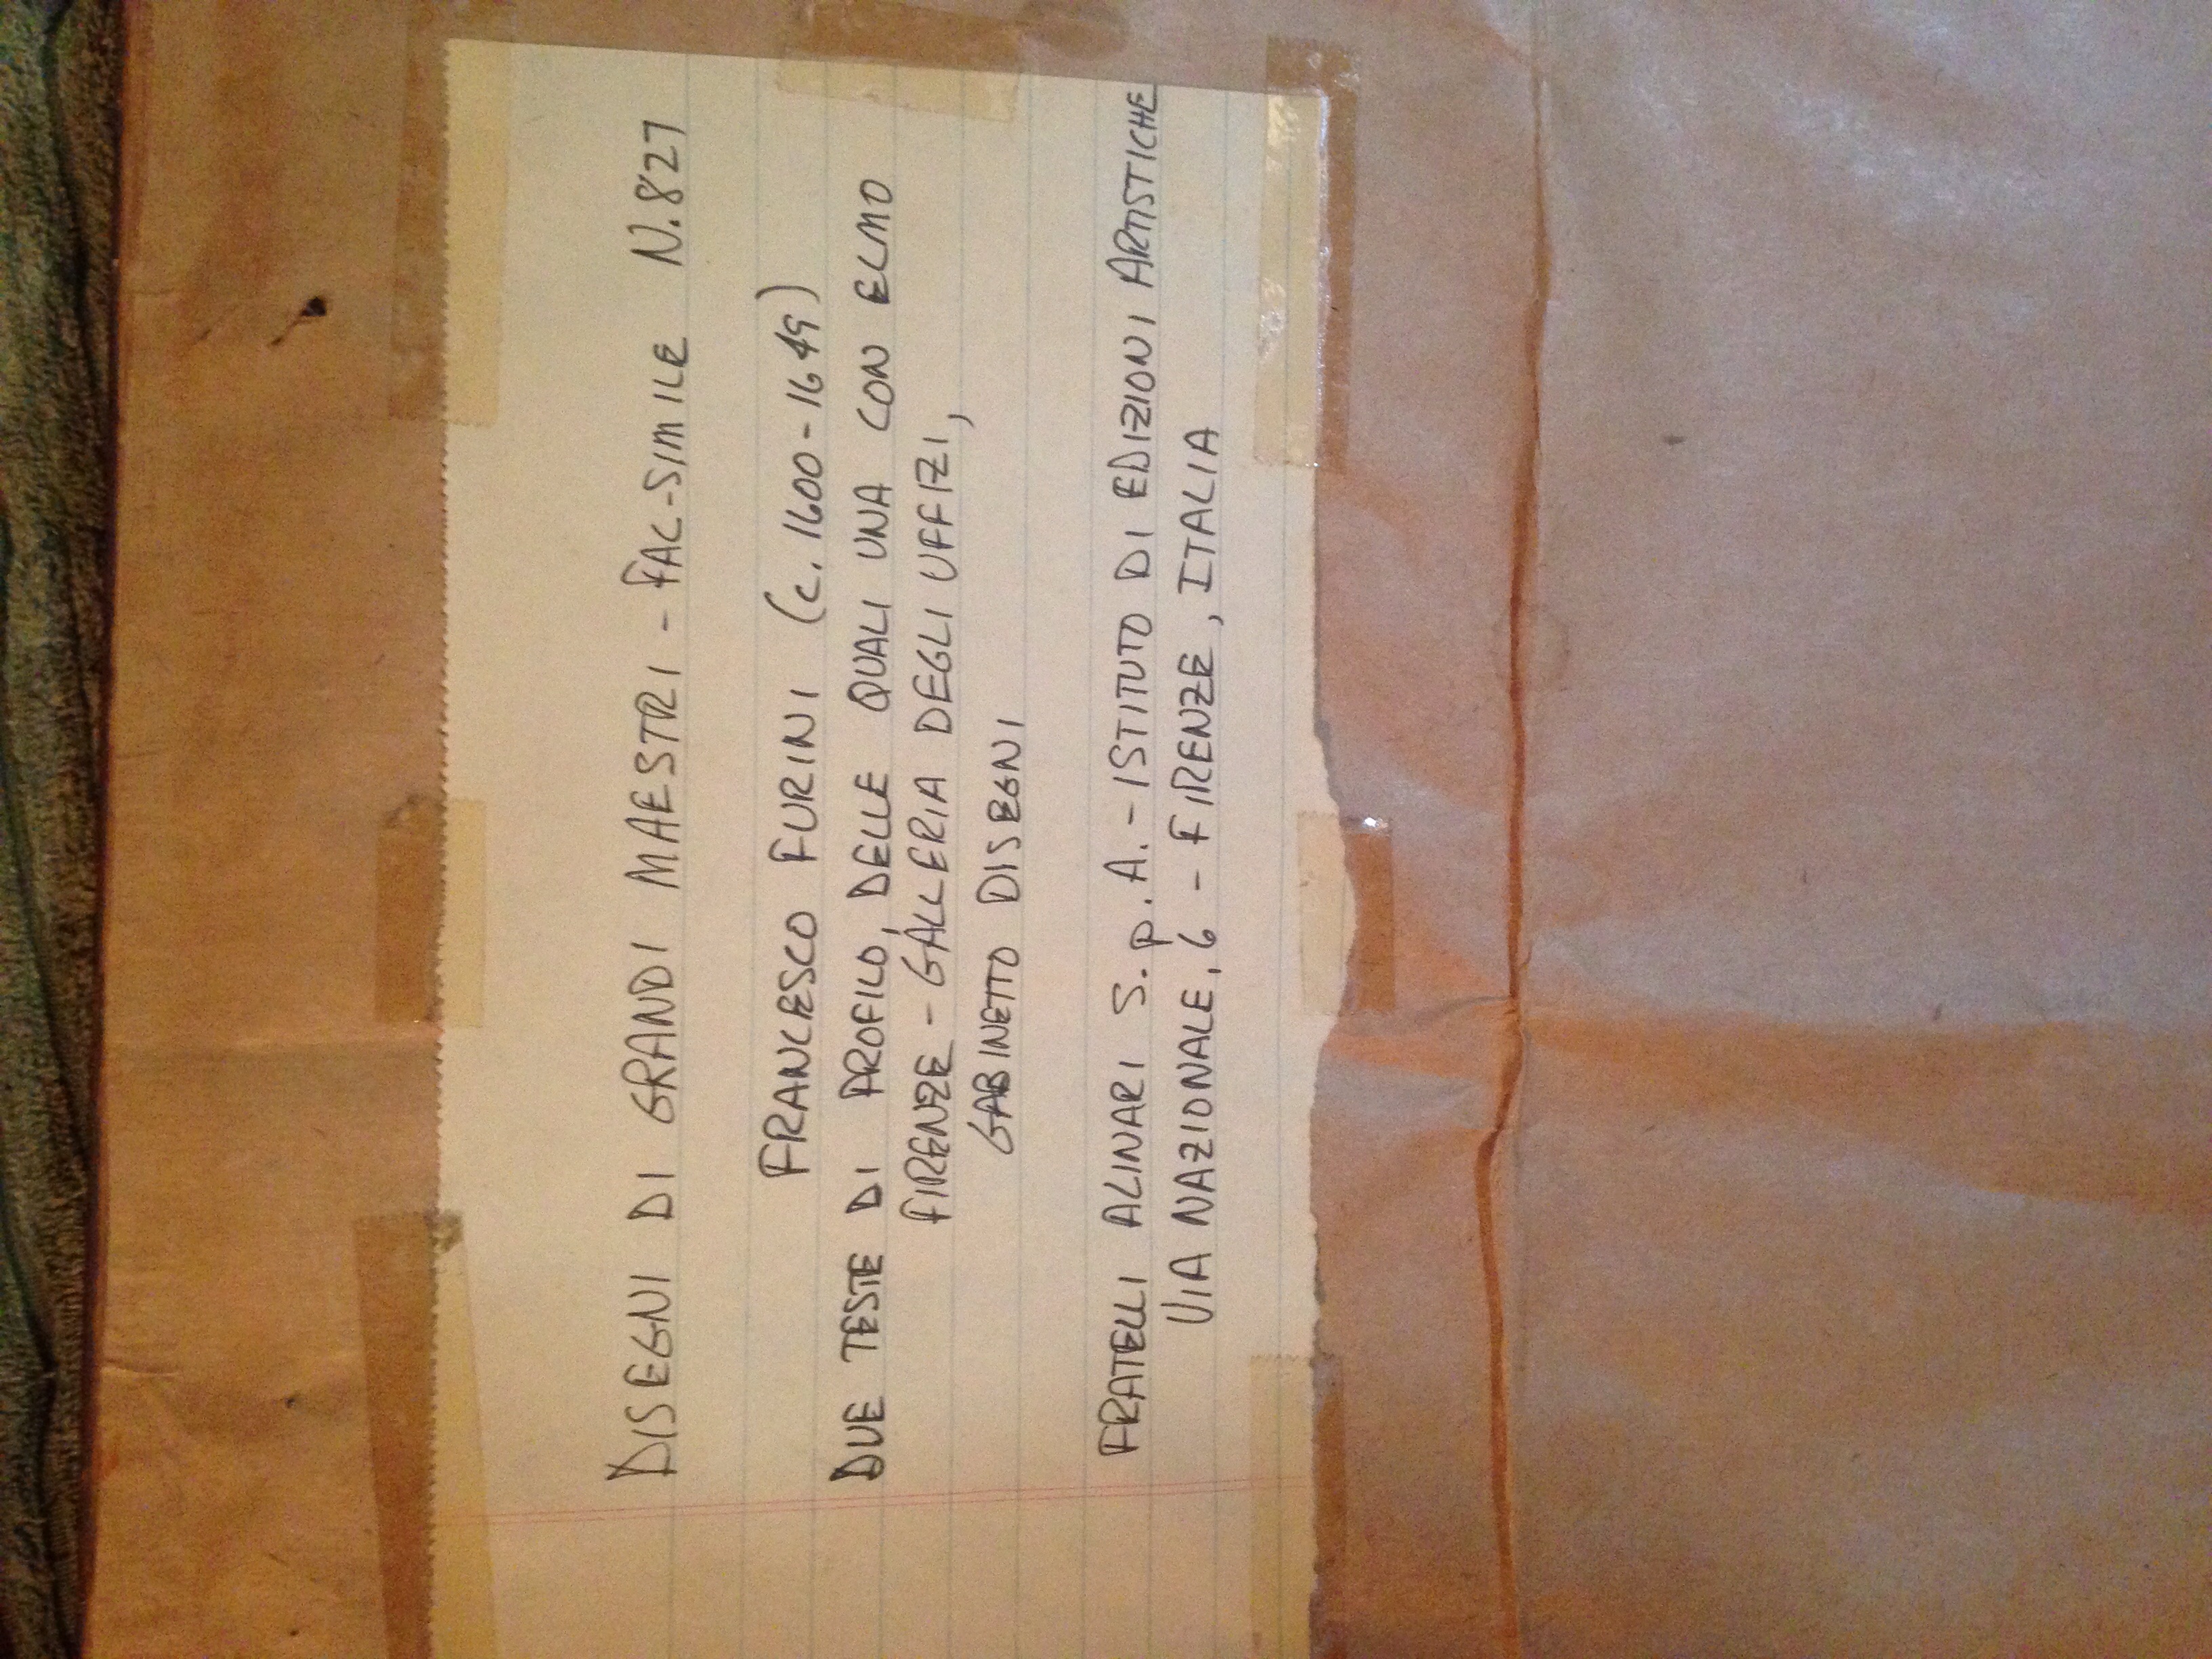 DISEGNI DI GRANDI MAESTRI - FAC-SIMILE N.827
FRANCESCO FURINI (c. 1600-1649)
DUE TESTE DI PROFILO, DELLE QUALI UNA CON ELMO
FIRENZE - GALLERIA DEGLI UFFIZI,
GABINETTO DISEGNI
FRATELLI ALINARI S.p.A. - ISTITUTO DI EDIZIONI ARTISTICHE
VIA NAZIONALE, 6 - FIRENZE, ITALIA